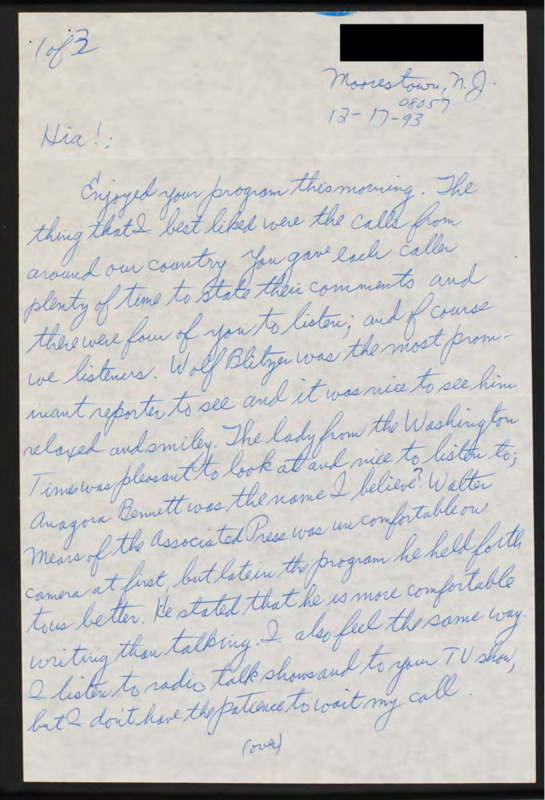 1 of 3
Moorestown, N.J.
08057
12-17-93
Hia!;
Enjoyed your program this morning. The
thing that I best liked were the calls from
around our country. You gave each caller
plenty of time to state their comments and
there were four of you to listen; and of course
we listeners. Wolf Blitzer was the most prom-
inant reporter to see and it was nice to see him
relaxed and smiley. The lady from the Washington
Times was pleasant to look at and nice to listen to;
Anagora Bennett was the name I believe? Walter
Mears of the Associated Press was uncomfortable on
camera at first, but late in the program he held forth
to us better. He stated that he is more comfortable
writing than talking. I also feel the same way.
I listen to radio talk shows and to your TV show,
but I don't have the patience to wait my call.
(over)